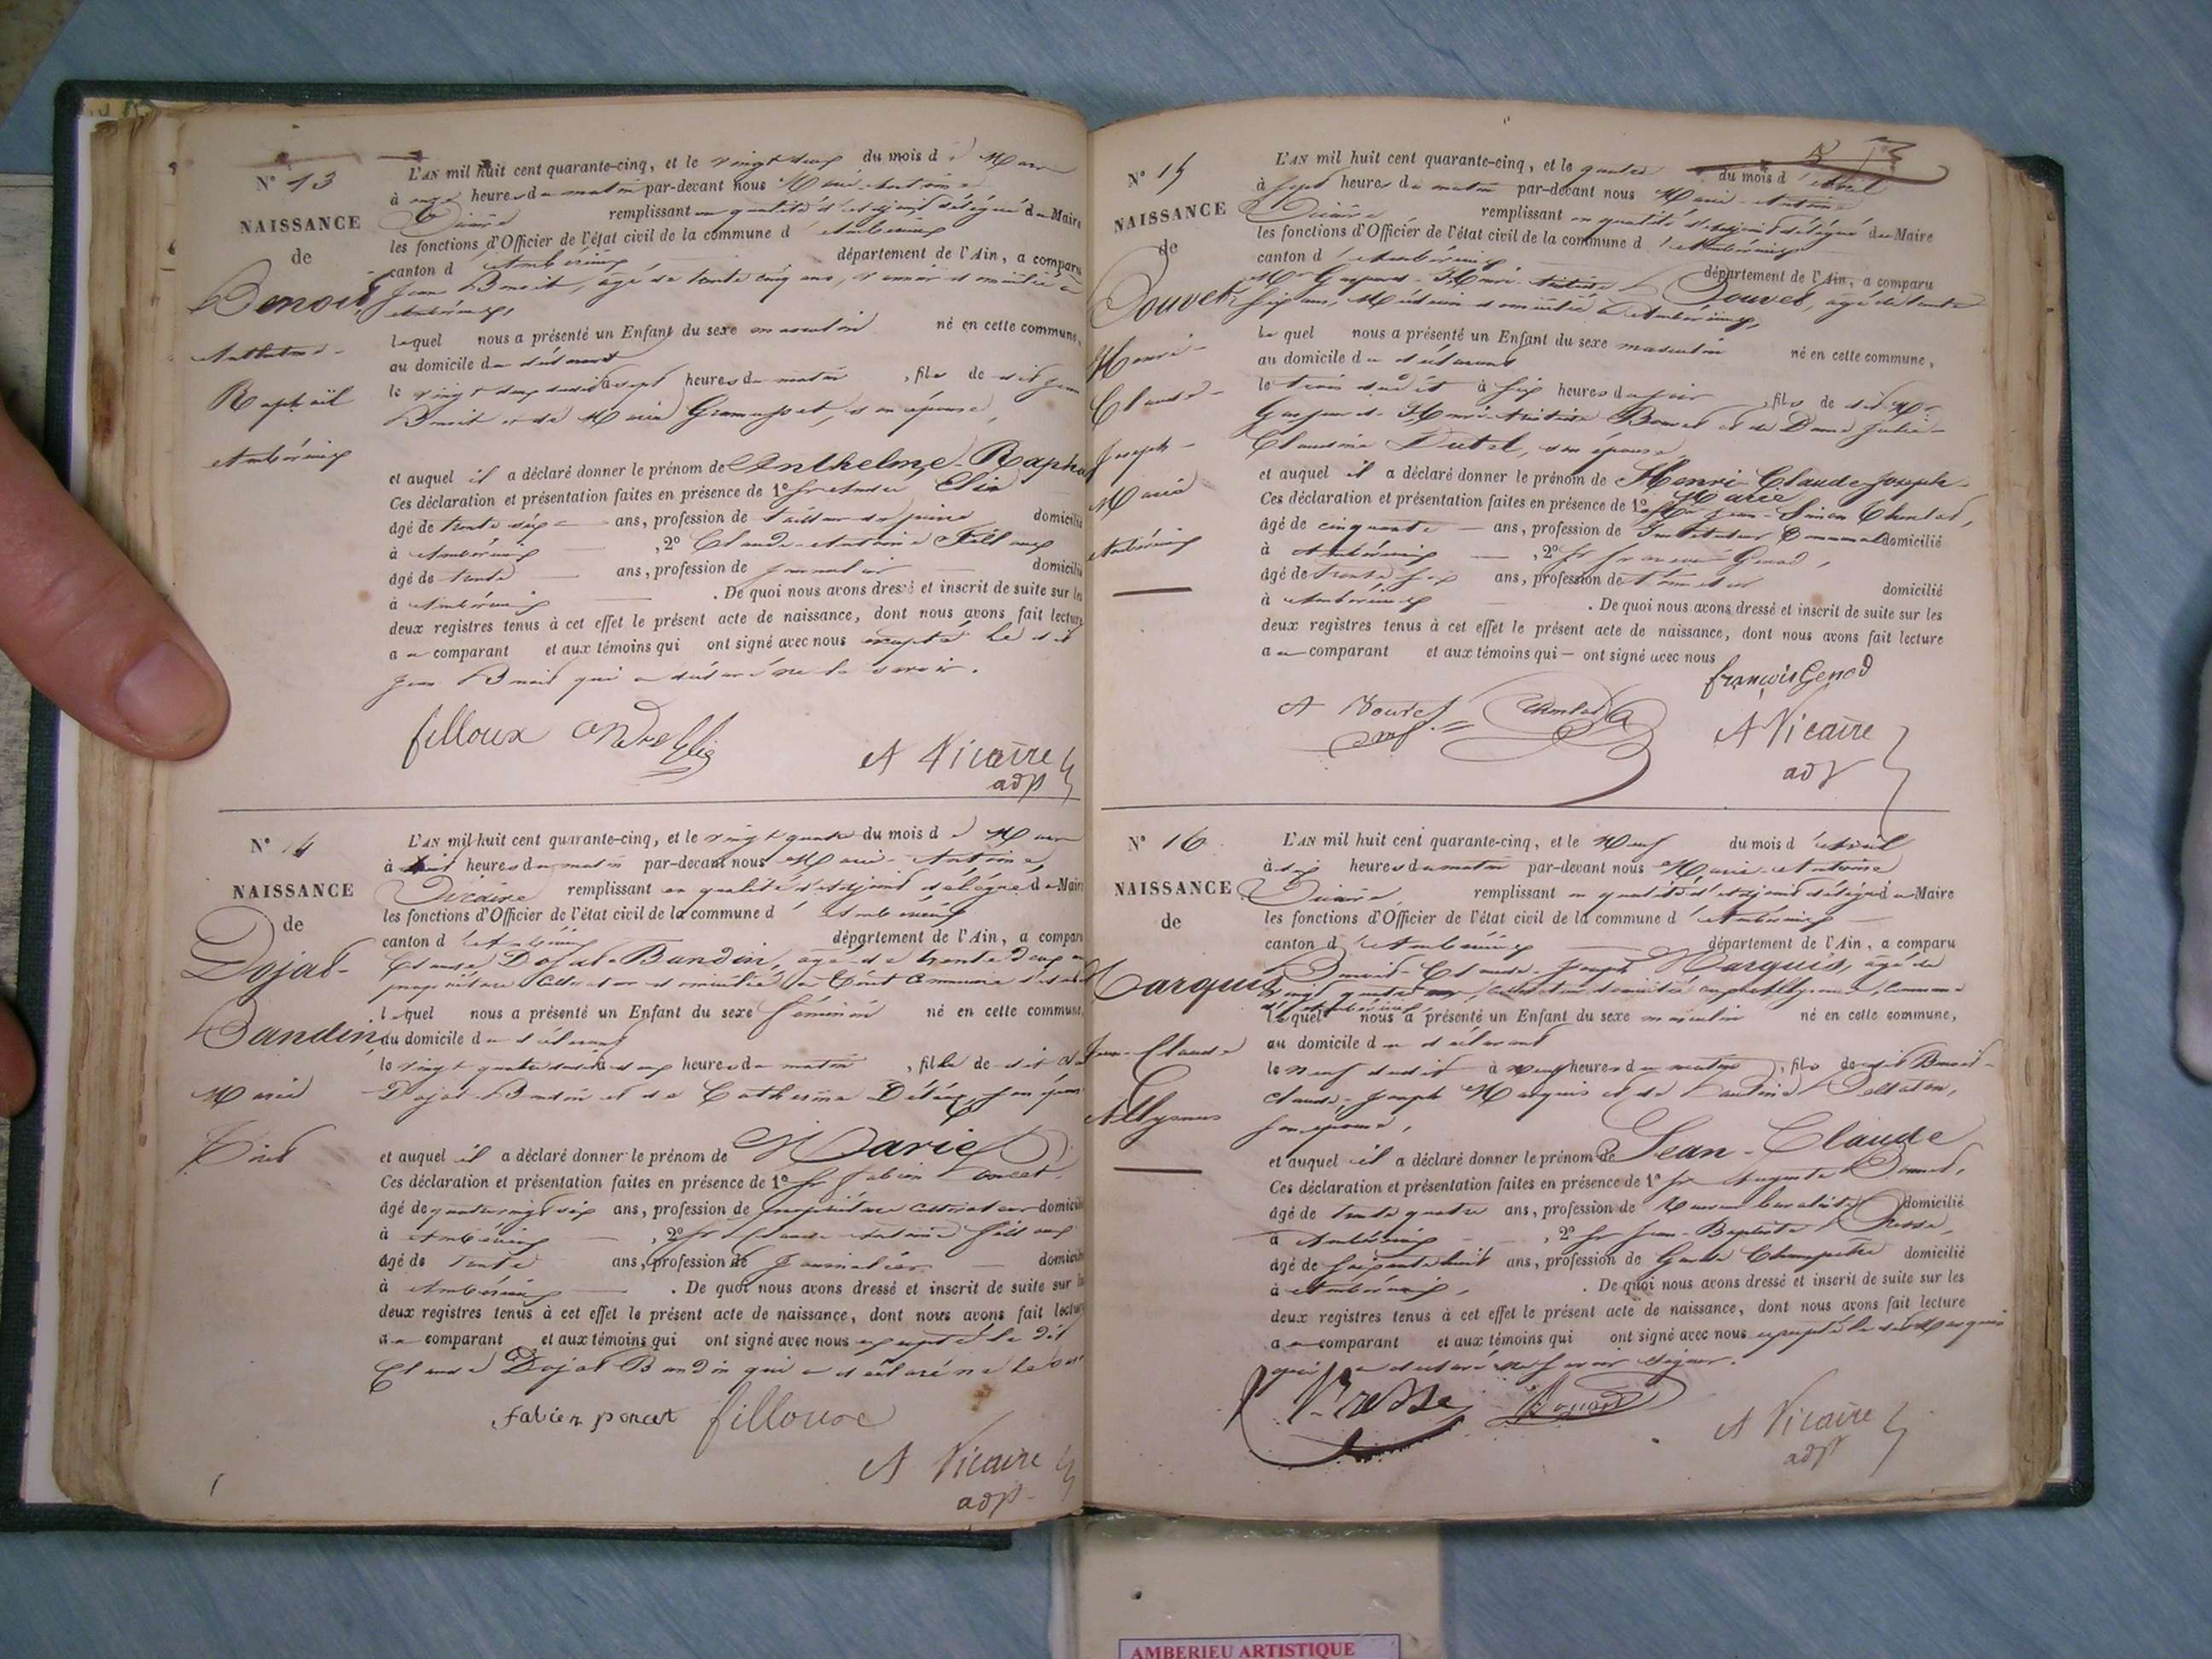 N° 13
NAISSANCE
de
Benoit,
Anthelme-
Raphaël
Ambérieux
L'AN mil huit cent quarante-cinq, et le vingt deux du mois de Mars
à onze heures du matin par-devant nous Marie-Antoine
Vicaire remplissant en qualité d'adjoint délégué du Maire
les fonctions d'Officier de l'état civil de la commune d'Ambérieux
canton d'Ambérieux département de l'Ain, a comparu
Jean Benoit, âgé de trente cinq ans, domicilié à
Ambérieux,
lequel nous a présenté un Enfant du sexe masculin né en cette commune,
au domicile du déclarant
le vingt deux dudit à sept heures du matin, fils de dit Jean
Benoit et de Marie, son épouse,
et auquel il a déclaré donner le prénom de Anthelme-Raphaël
Ces déclaration et présentation faites en présence de 1° Sr André Elie
âgé de trente six ans, profession de tailleur de pierre domicilié
à Ambérieux, 2° Claude-Antoine Filloux
âgé de trente ans, profession de journalier domicilié
à Ambérieux. De quoi nous avons dressé et inscrit de suite sur les
deux registres tenus à cet effet le présent acte de naissance, dont nous avons fait lecture
au comparant et aux témoins qui ont signé avec nous excepté le dit
Jean Benoit qui a déclaré ne le savoir.
filloux André Elie
A Vicaire
adjt
N° 14
NAISSANCE
de
Dojat-
Bandin,
Marie
Tiret
L'AN mil huit cent quarante-cinq, et le vingt quatre du mois de Mars
à huit heures du matin par-devant nous Marie-Antoine
Vicaire remplissant en qualité d'adjoint délégué du Maire
les fonctions d'Officier de l'état civil de la commune d'Ambérieux
canton d'Ambérieux département de l'Ain, a comparu
Claude Dojat-Bandin, âgé de trente deux ans
propriétaire cultivateur domicilié à Tiret commune
lequel nous a présenté un Enfant du sexe féminin né en cette commune,
au domicile du déclarant
le vingt quatre dudit à deux heures du matin, fille de dit Claude
Dojat-Bandin et de Catherine, son épouse
et auquel il a déclaré donner le prénom de Marie
Ces déclaration et présentation faites en présence de 1° Sr Fabien Poncet
âgé de quatre vingt six ans, profession de propriétaire cultivateur domicilié
à Ambérieux, 2° Sr Claude Antoine Filloux
âgé de trente ans, profession de journalier domicilié
à Ambérieux. De quoi nous avons dressé et inscrit de suite sur les
deux registres tenus à cet effet le présent acte de naissance, dont nous avons fait lecture
au comparant et aux témoins qui ont signé avec nous excepté le dit
Claude Dojat Bandin qui a déclaré ne le savoir
fabien poncet filloux
A Vicaire
adjt
N° 15
NAISSANCE
de
Bouvet,
Henri-
Claude-
Joseph-
Marie
Ambérieux
L'AN mil huit cent quarante-cinq, et le quatre du mois d'Avril
à sept heures du matin par-devant nous Marie-Antoine
Vicaire remplissant en qualité d'adjoint délégué du Maire
les fonctions d'Officier de l'état civil de la commune d'Ambérieux
canton d'Ambérieux département de l'Ain, a comparu
Mr Gaspard-Henri-Aristide Bouvet, âgé de trente
six ans, Médecin domicilié à Ambérieux,
lequel nous a présenté un Enfant du sexe masculin né en cette commune,
au domicile du déclarant
le trois dudit à six heures du soir, fils de dit Mr
Gaspard-Henri-Aristide Bouvet et de Dame Julie-
Claudine Dutel, son épouse
et auquel il a déclaré donner le prénom de Henri-Claude-Joseph-
Marie
Ces déclaration et présentation faites en présence de 1° Mr Jean-Simon Chenlat,
âgé de cinquante ans, profession de Instituteur Communal domicilié
à Ambérieux, 2° Sr François Genod,
âgé de trente six ans, profession de domicilié
à Ambérieux. De quoi nous avons dressé et inscrit de suite sur les
deux registres tenus à cet effet le présent acte de naissance, dont nous avons fait lecture
au comparant et aux témoins qui ont signé avec nous
françois Genod
A Bouvet
A Vicaire
adjt
N° 16
NAISSANCE
de
Marquis
Jean-Claude
Allymes
L'AN mil huit cent quarante-cinq, et le neuf du mois d'Avril
à dix heures du matin par-devant nous Marie-Antoine
Vicaire remplissant en qualité d'adjoint délégué du Maire
les fonctions d'Officier de l'état civil de la commune d'Ambérieux
canton d'Ambérieux département de l'Ain, a comparu
Benoit-Claude-Joseph Marquis, âgé de
vingt quatre ans, cultivateur domicilié aux Allymes, commune
d'Ambérieux
lequel nous a présenté un Enfant du sexe masculin né en cette commune,
au domicile du déclarant
le neuf dudit à neuf heures du matin, fils de dit Benoit-
Claude-Joseph Marquis et de Pauline Pellaton,
son épouse,
et auquel il a déclaré donner le prénom de Jean-Claude
Ces déclaration et présentation faites en présence de 1° Sr Auguste Bonnet,
âgé de trente quatre ans, profession de buraliste domicilié
à Ambérieux, 2° Sr Jean-Baptiste Bresse,
âgé de soixante huit ans, profession de Garde Champêtre domicilié
à Ambérieux. De quoi nous avons dressé et inscrit de suite sur les
deux registres tenus à cet effet le présent acte de naissance, dont nous avons fait lecture
au comparant et aux témoins qui ont signé avec nous excepté le dit Marquis
qui a déclaré ne savoir signer.
Bresse Bonnet
A Vicaire
adjt
AMBERIEU ARTISTIQUE